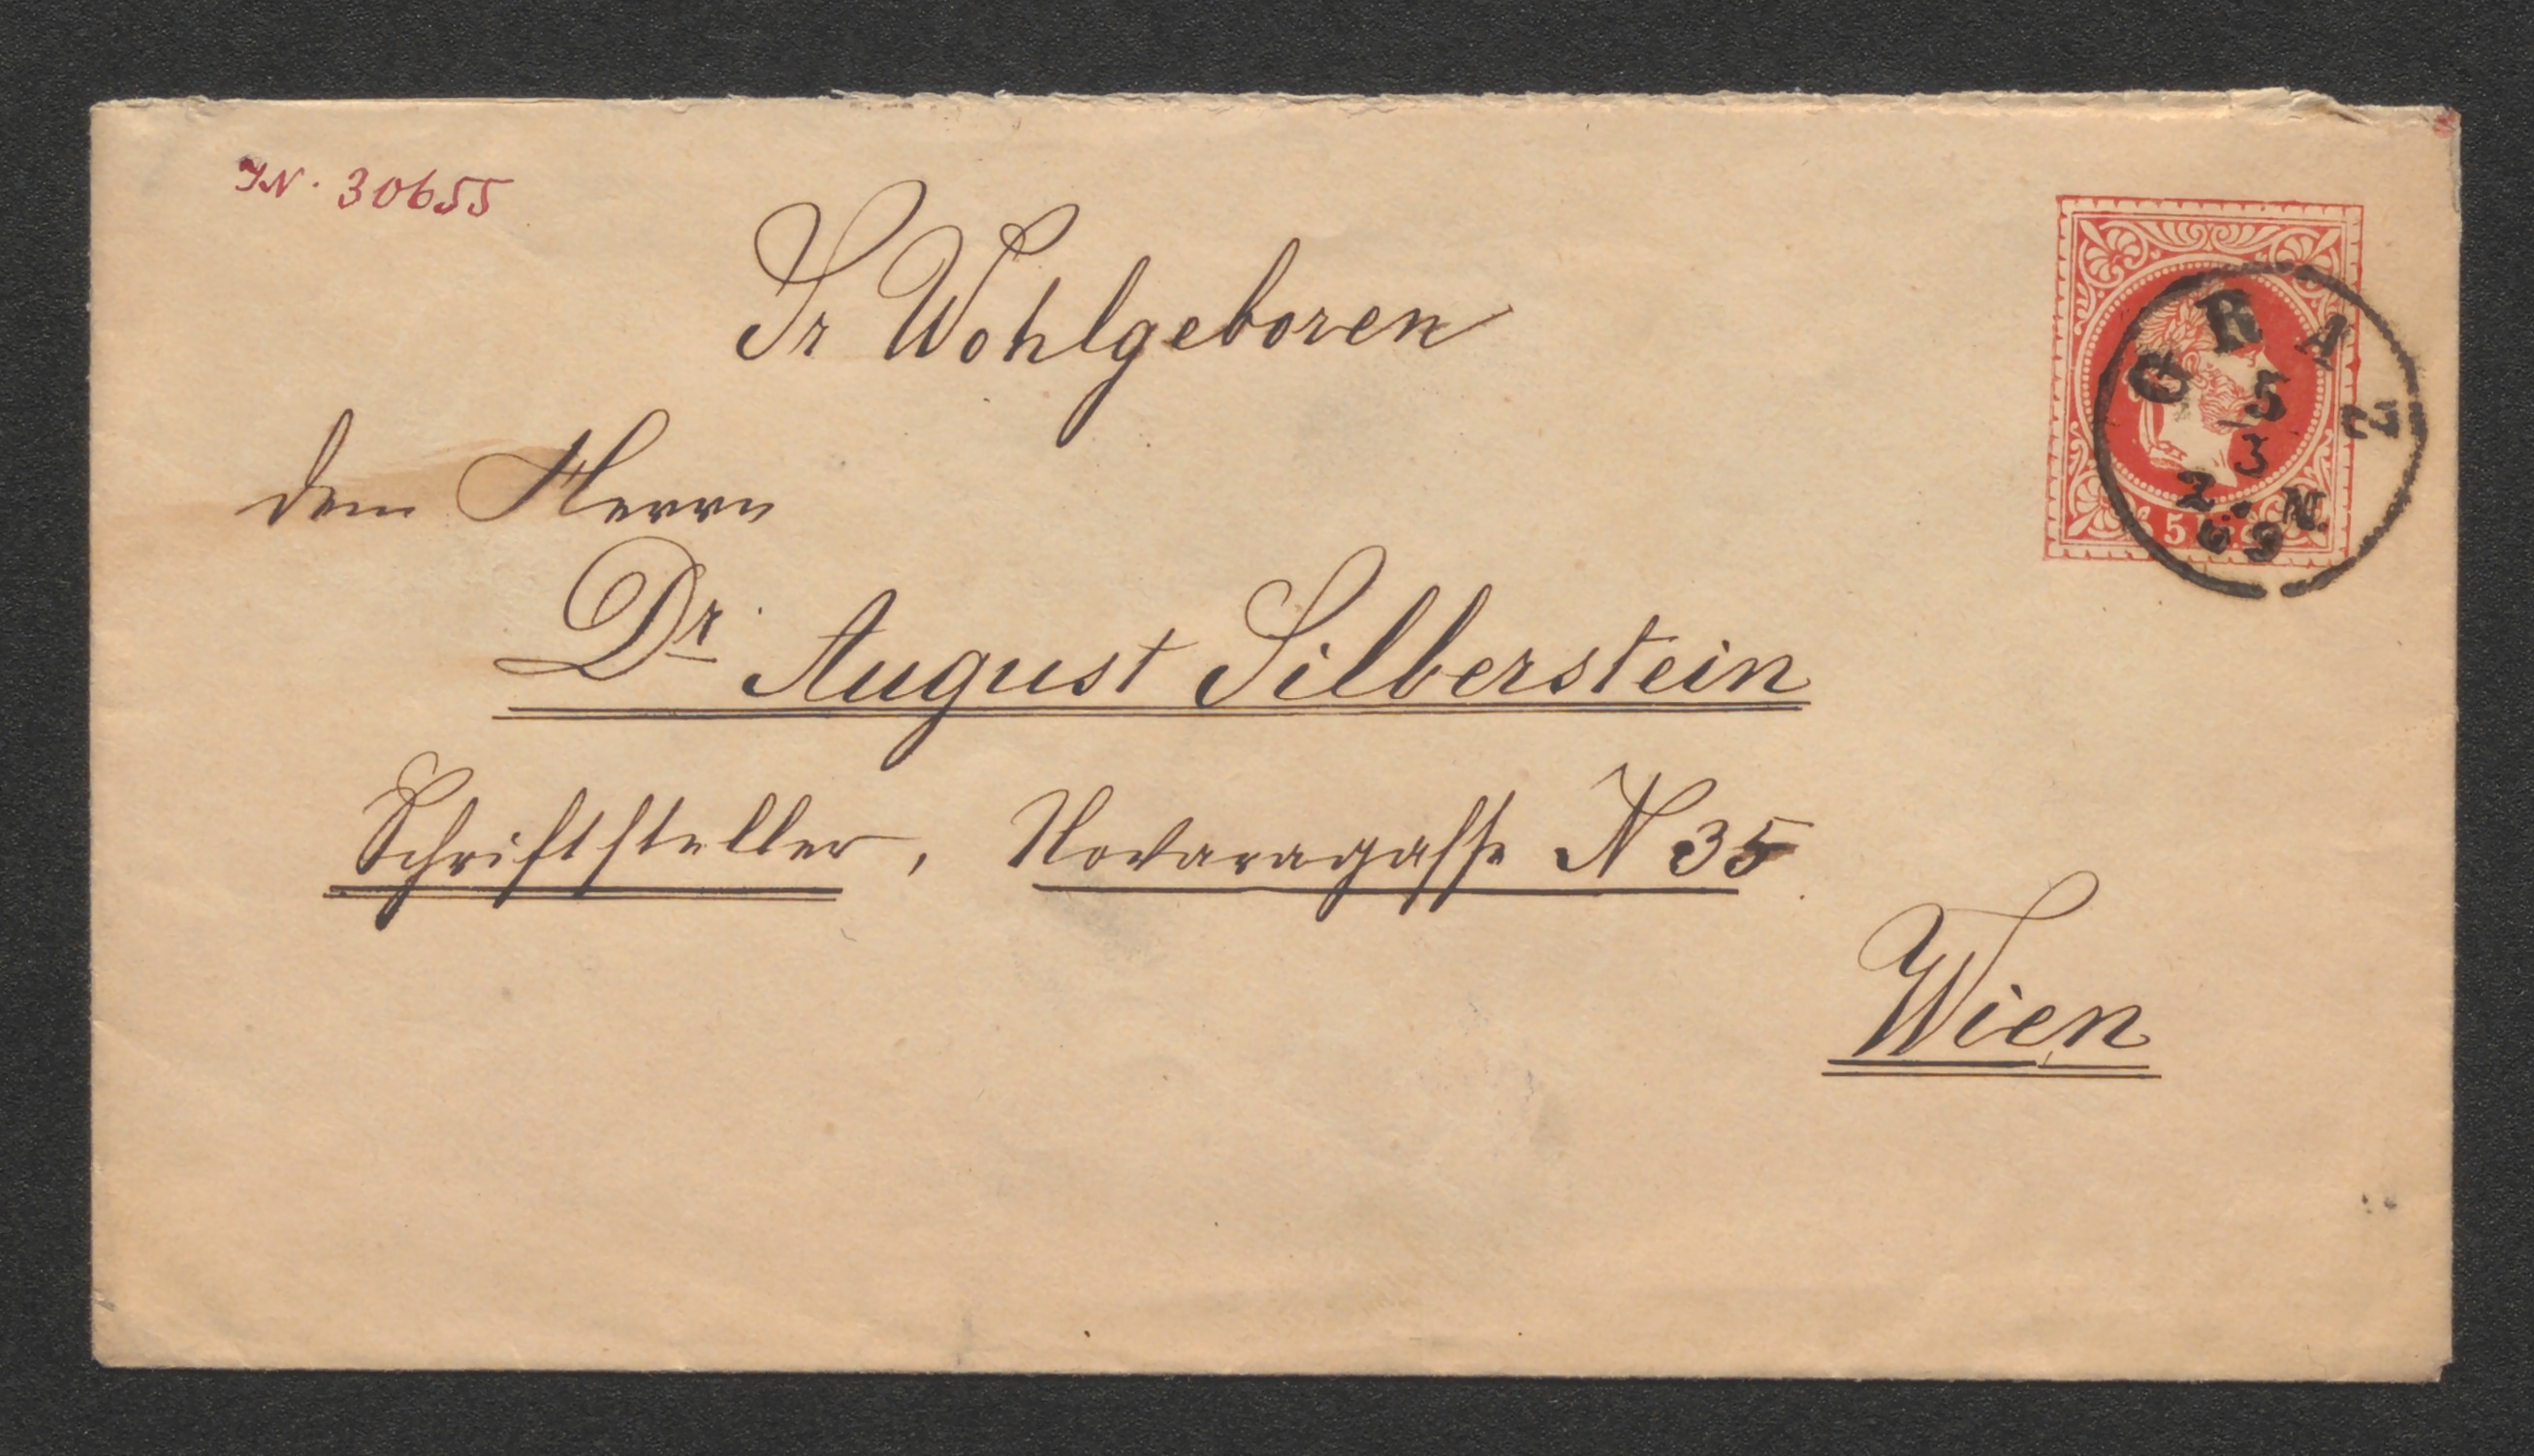 IN. 30655
Sr Wohlgeboren
dem Herrn
Dr. August Silberstein
Schriftsteller, Novaragasse N 35
Wien
GRAZ
5
3
2. N.
69
5